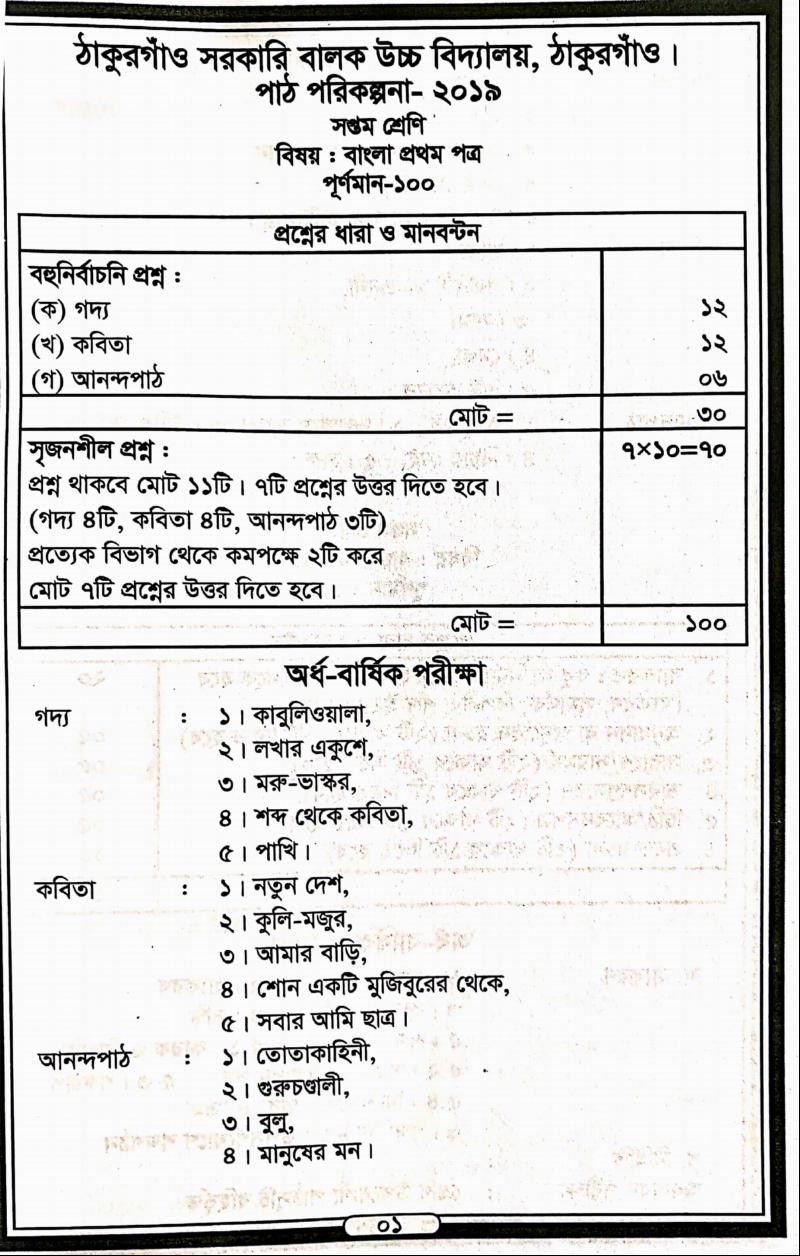 ঠাকুরগাঁও সরকারি বালক উচ্চ বিদ্যালয়, ঠাকুরগাঁও।
পাঠ পরিকল্পনা- ২০১৯
সপ্তম শ্রেণি
বিষয় : বাংলা প্রথম পত্র
পূর্ণমান-১০০
প্রশ্নের ধারা ও মানবন্টন
বহুনির্বাচনি প্রশ্ন :
(ক) গদ্য ১২
(খ) কবিতা ১২
(গ) আনন্দপাঠ ০৬
মোট = ৩০
সৃজনশীল প্রশ্ন : ৭×১০=৭০
প্রশ্ন থাকবে মোট ১১টি। ৭টি প্রশ্নের উত্তর দিতে হবে।
(গদ্য ৪টি, কবিতা ৪টি, আনন্দপাঠ ৩টি)
প্রত্যেক বিভাগ থেকে কমপক্ষে ২টি করে
মোট ৭টি প্রশ্নের উত্তর দিতে হবে।
মোট = ১০০
অর্ধ-বার্ষিক পরীক্ষা
গদ্য : ১। কাবুলিওয়ালা,
২। লখার একুশে,
৩। মরু-ভাস্কর,
৪। শব্দ থেকে কবিতা,
৫। পাখি।
কবিতা : ১। নতুন দেশ,
২। কুলি-মজুর,
৩। আমার বাড়ি,
৪। শোন একটি মুজিবুরের থেকে,
৫। সবার আমি ছাত্র।
আনন্দপাঠ : ১। তোতাকাহিনী,
২। গুরুচণ্ডালী,
৩। বুলু,
৪। মানুষের মন।
০১